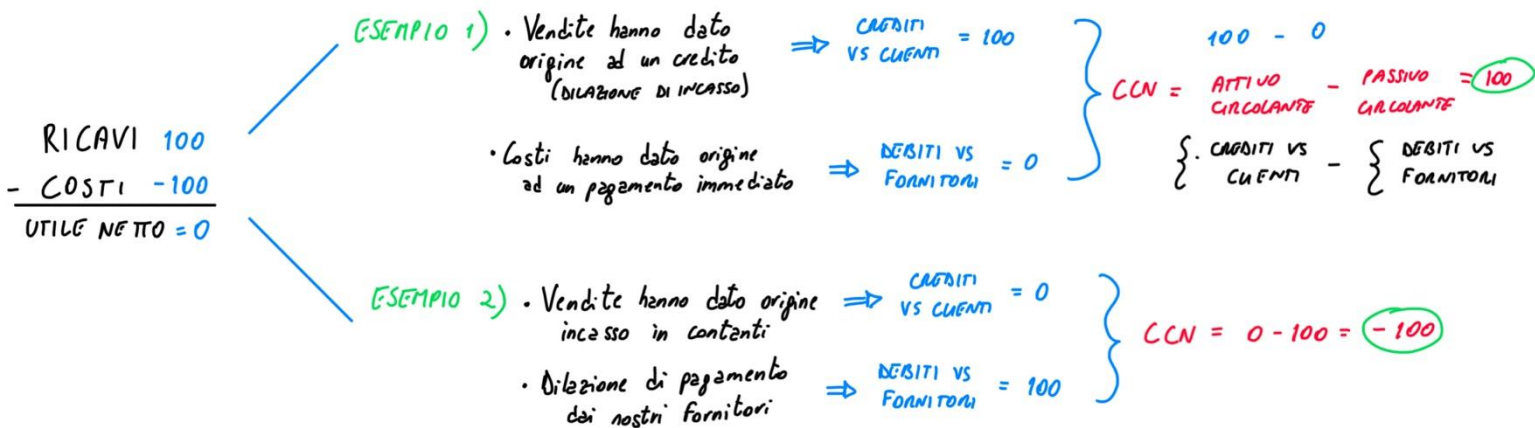 RICAVI 100
- COSTI -100
UTILE NETTO = 0
ESEMPIO 1) • Vendite hanno dato
origine ad un credito
(DILAZIONE DI INCASSO)
⇒ CREDITI
VS CLIENTI = 100
• Costi hanno dato origine
ad un pagamento immediato
⇒ DEBITI VS
FORNITORI = 0
100 - 0
CCN = ATTIVO
CIRCOLANTE - PASSIVO
CIRCOLANTE = 100
{ • CREDITI VS
CLIENTI - { DEBITI VS
FORNITORI
ESEMPIO 2) • Vendite hanno dato origine
incasso in contanti
⇒ CREDITI
VS CLIENTI = 0
• Dilazione di pagamento
dai nostri fornitori
⇒ DEBITI VS
FORNITORI = 100
CCN = 0 - 100 = -100